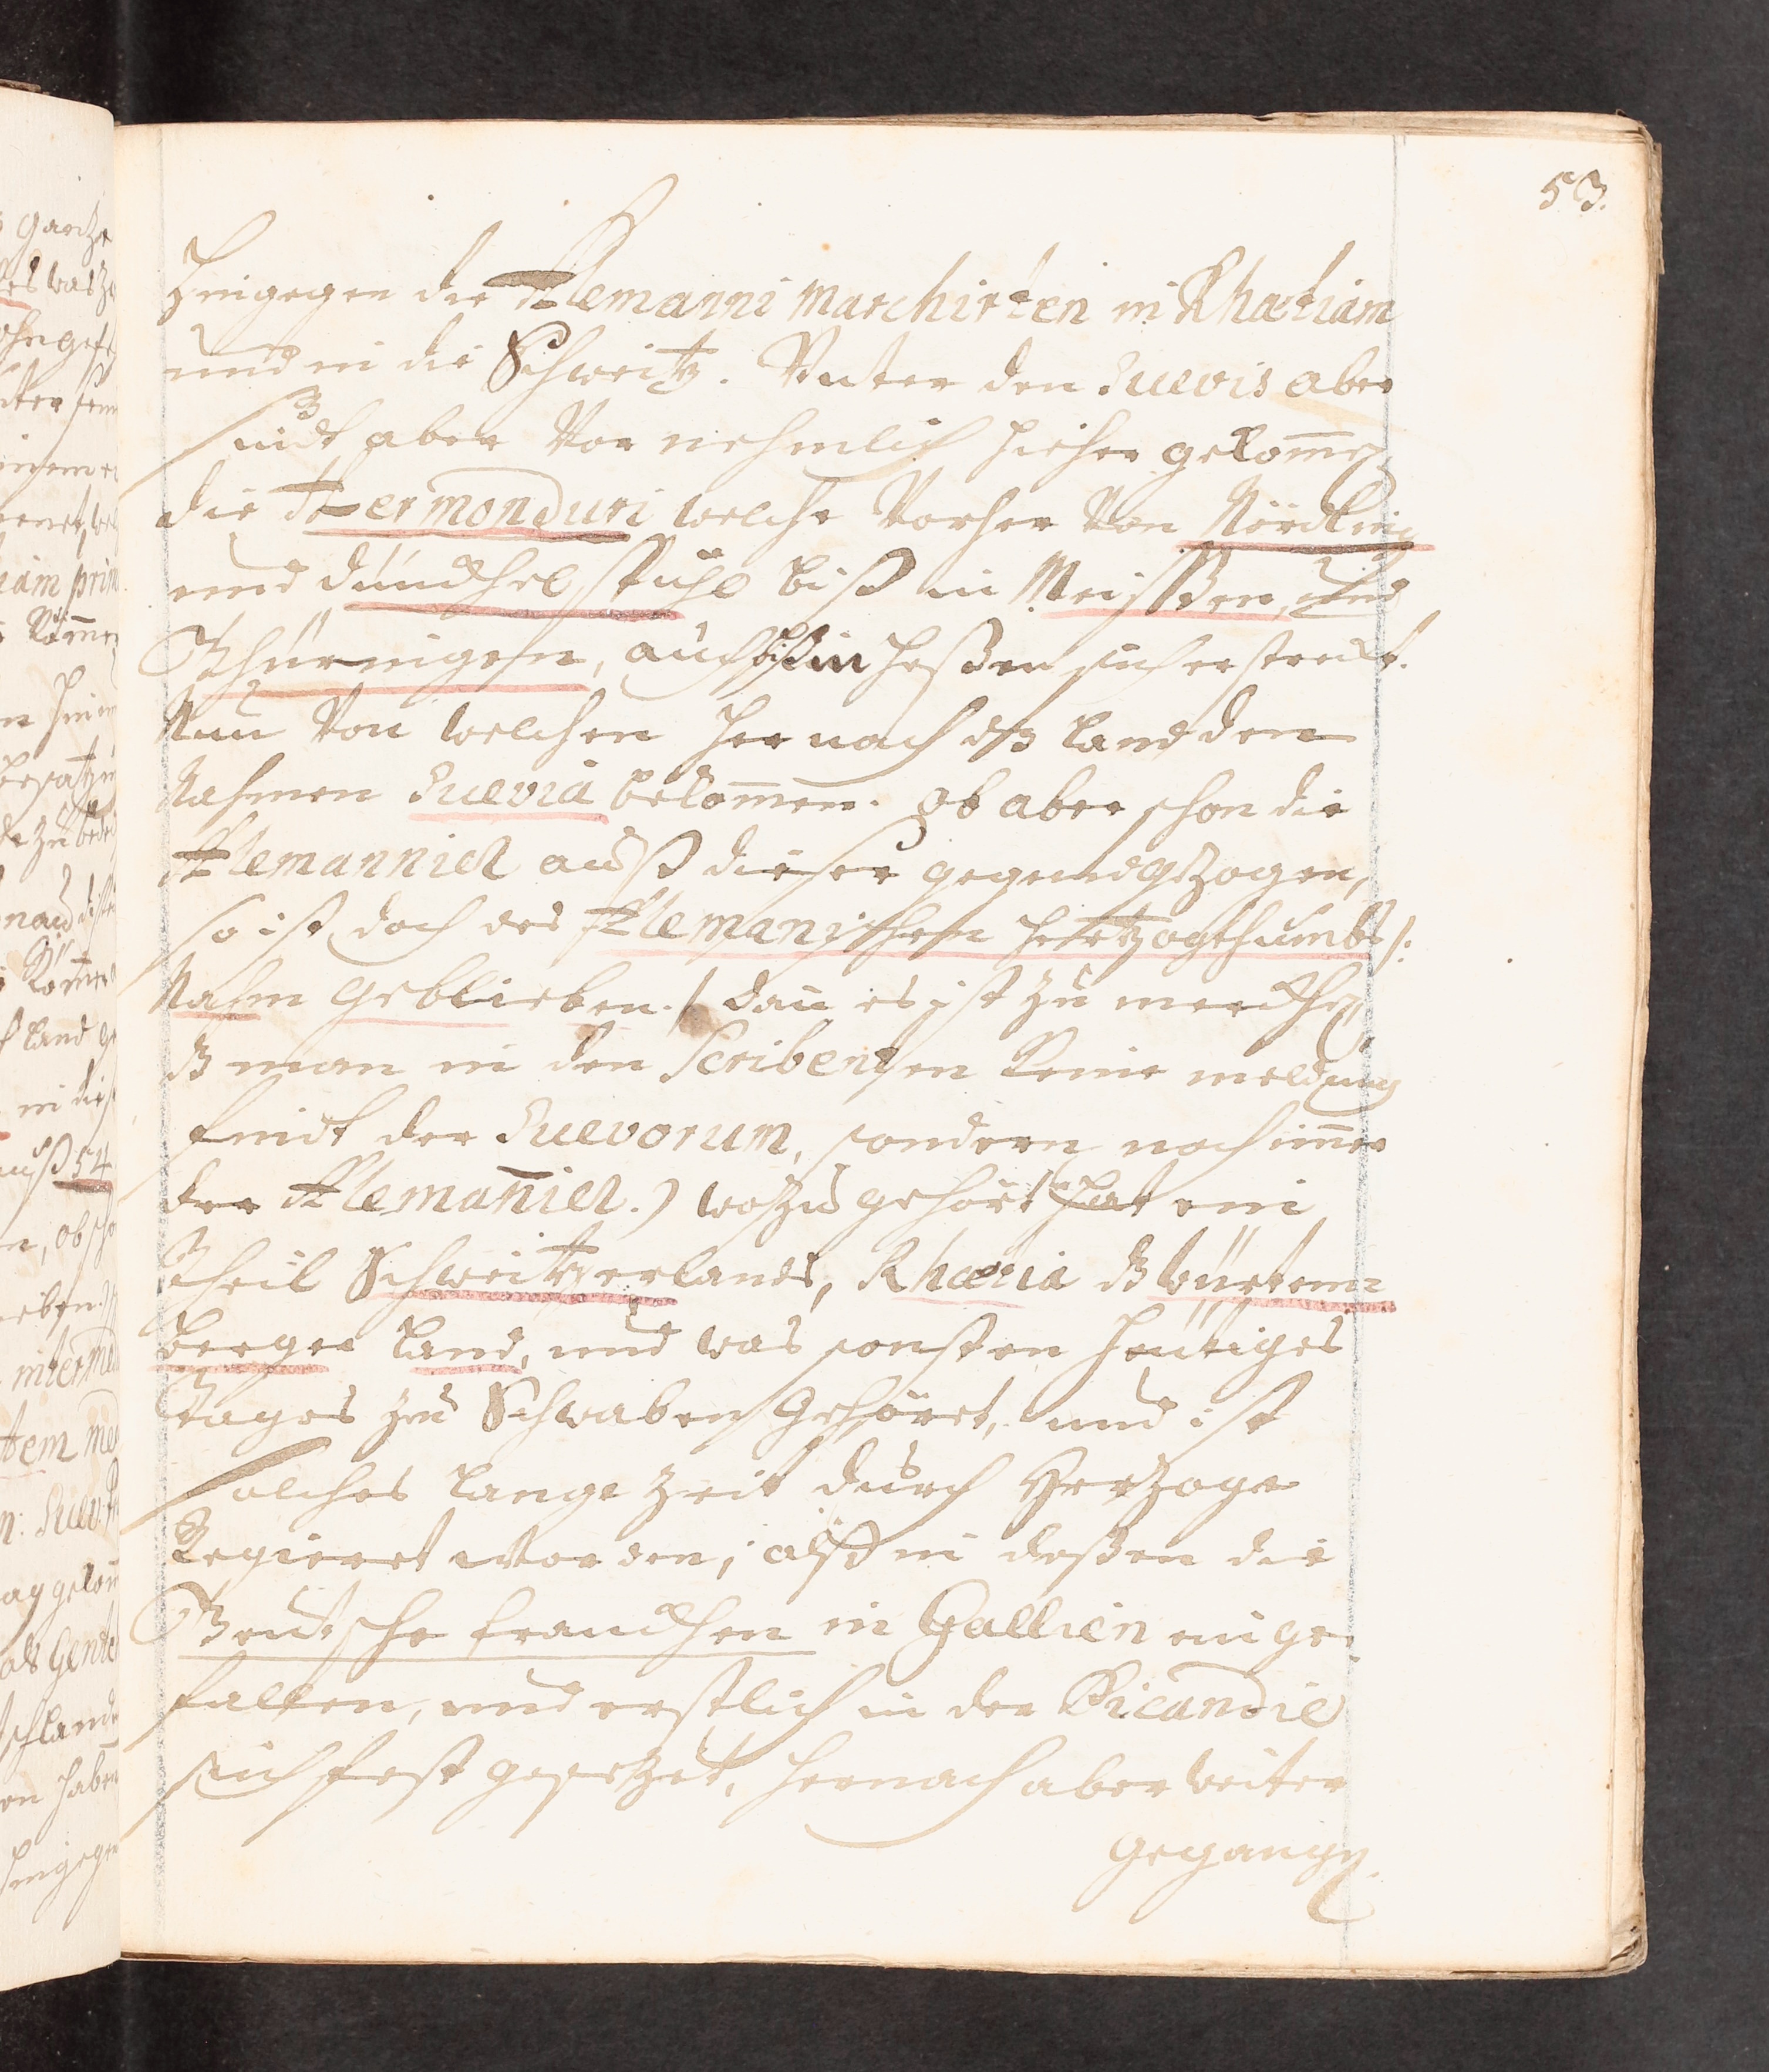 53.
Hingegen die Alemanni marchirten in Rhætiam
und in die Schweitz. Unter den Suevis aber
sindt aber Vornehmlich hieher gekom̅en
die Hermonduri welche Vorher Von Nördling
und dünckhel spühl biß in Meissen, und
Thüringen, auch biß in Heßen sich erstreckt.
Nun Von welchen hernach dß Land den
Nahmen Suevia bekom̅en. Ob aber schon die
Alemannier auß dieser gegend gezogen,
so ist doch des Alemanischen Hertzogthumbs /:
Nahm geblieben. / dan̅ es ist zu merckhen,
dß man in den Scribenten keine meldung
findt der Suevorum, sondern noch im̅er
der Aleman̅ier.) wozu gehört hat ein
Theil Schweitzerlands, Rhætia dß würtem-
berger Land, und was sonsten heutiges
Tages zu Schwaben gehöret, und ist
solches lange Zeit durch Herzoge
Regieret worden; alß in deßen die
Teutsche franckhen in Gallien einge-
fallen, und erstlich in der Picardie
sich fest gesetzet, hernach aber weiter
gegangen